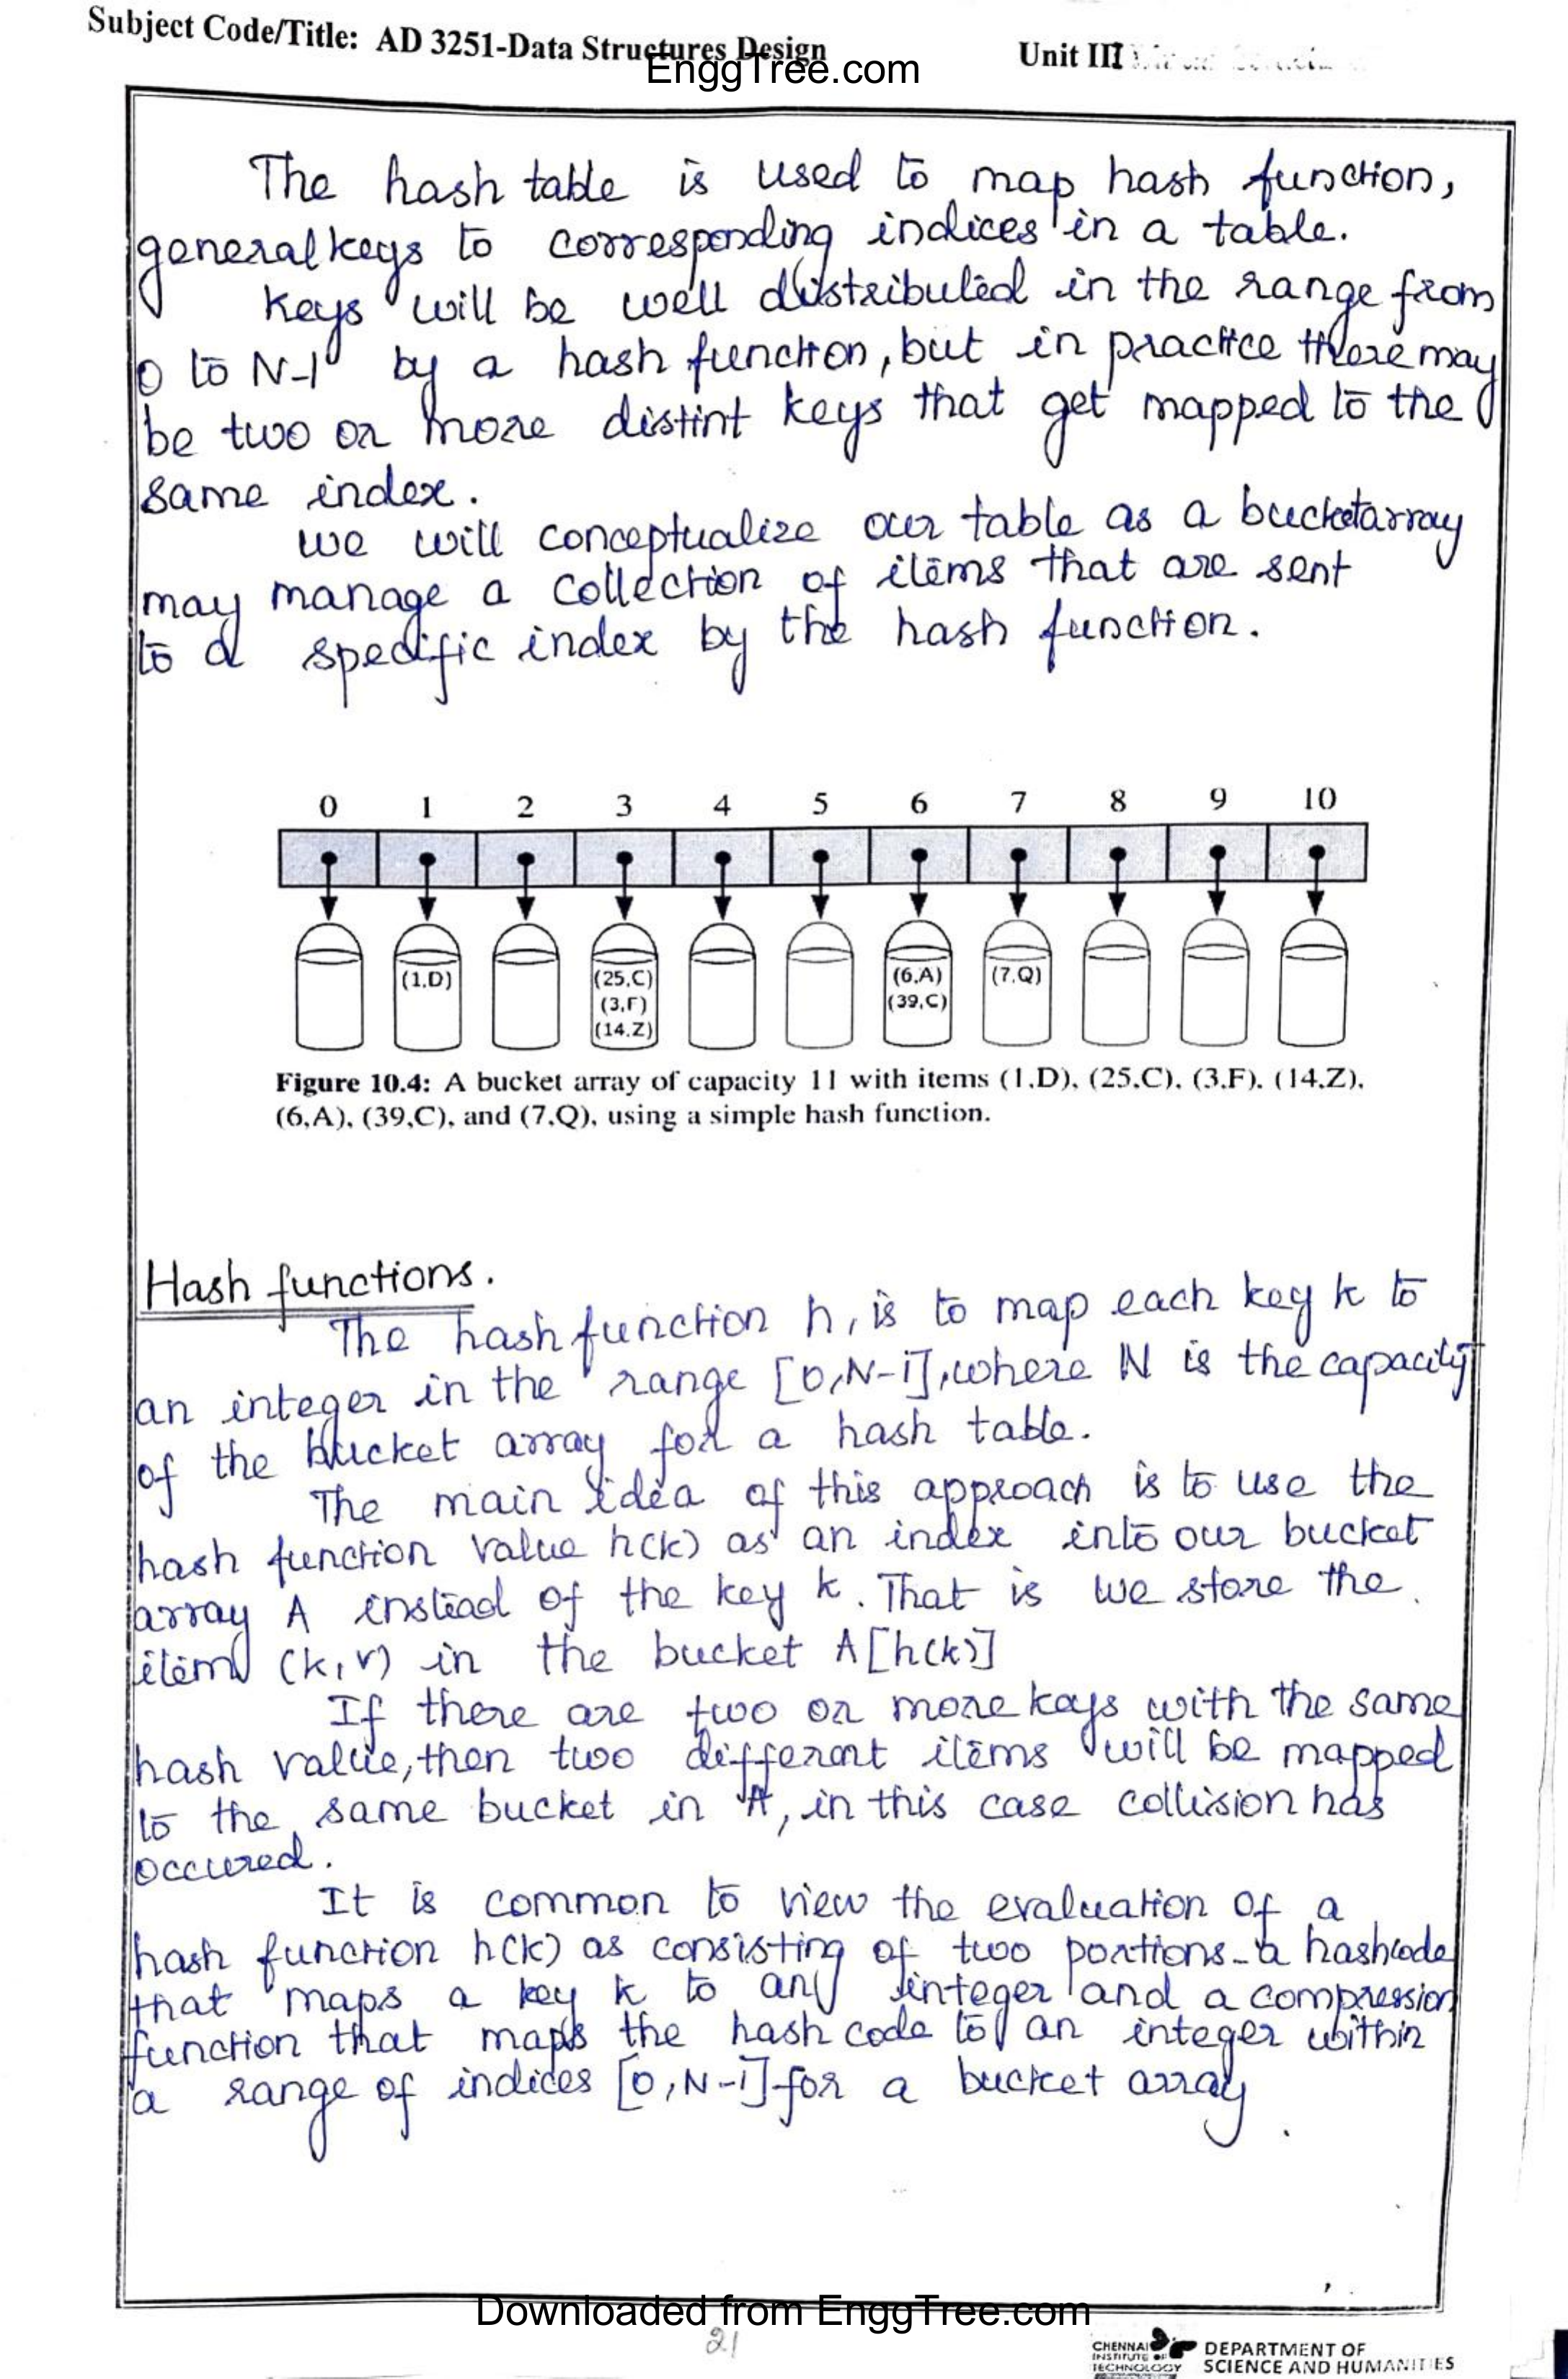 Subject Code/Title: AD 3251-Data Structures Design
Unit III
EnggTree.com
The hash table is used to map hash function,
general keys to corresponding indices in a table.
Keys will be well distributed in the range from
0 to N-1 by a hash function, but in practice there may
be two or more distint keys that get mapped to the
same index.
we will conceptualize our table as a bucketarray
may manage a collection of items that are sent
to a specific index by the hash function.
0 1 2 3 4 5 6 7 8 9 10
(1,D) (25,C) (6,A) (7,Q)
(3,F) (39,C)
(14,Z)
Figure 10.4: A bucket array of capacity 11 with items (1,D), (25,C), (3,F), (14,Z),
(6,A), (39,C), and (7,Q), using a simple hash function.
Hash functions.
The hash function h, is to map each key k to
an integer in the range [0,N-1], where N is the capacity
of the bucket array for a hash table.
The main idea of this approach is to use the
hash function value h(k) as an index into our bucket
array A instead of the key k. That is we store the
item (k,v) in the bucket A[h(k)]
If there are two or more keys with the same
hash value, then two different items will be mapped
to the same bucket in A, in this case collision has
occured.
It is common to view the evaluation of a
hash function h(k) as consisting of two portions - a hashcode
that maps a key k to an integer and a compression
function that maps the hash code to an integer within
a range of indices [0,N-1] for a bucket array.
Downloaded from EnggTree.com
21
CHENNAI
INSTITUTE OF
TECHNOLOGY
DEPARTMENT OF
SCIENCE AND HUMANITIES